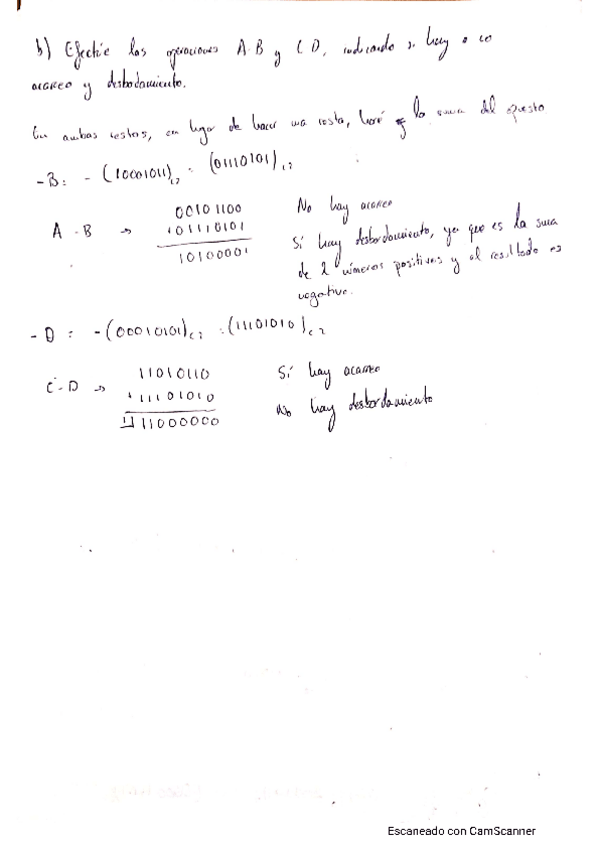 b) Efectúe las operaciones A-B y C-D, indicando si hay o no
acarreo y desbordamiento.
En ambas restas, en lugar de hacer una resta, haré la suma del opuesto
-B: -(10001011)c2 = (01110101)c2
A - B → 00101100
+01110101
10100001
No hay acarreo
Sí hay desbordamiento, ya que es la suma
de 2 números positivos y el resultado es
negativo.
-D = -(00010101)c2 = (11101010)c2
C-D → 11010110
+11101010
1 11000000
Sí hay acarreo
No hay desbordamiento
Escaneado con CamScanner